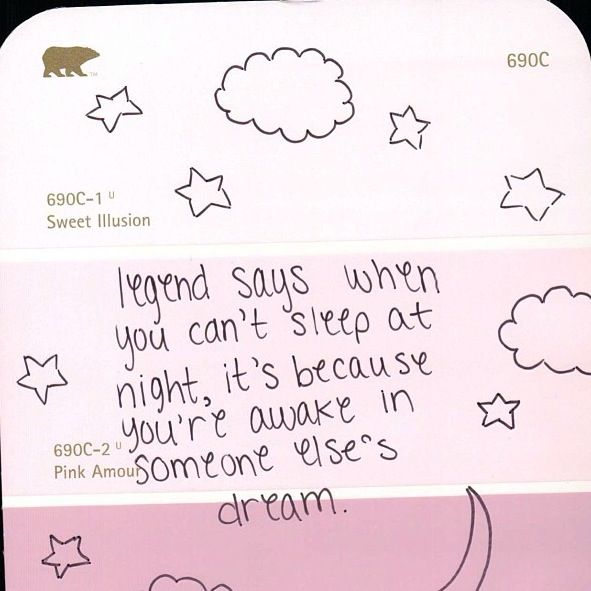 690C
690C-1 U
Sweet Illusion
legend says when
you can't sleep at
night, it's because
you're awake in
someone else's
dream.
690C-2 U
Pink Amour